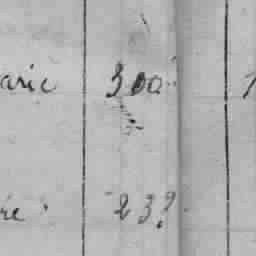 arie 300
re 23?